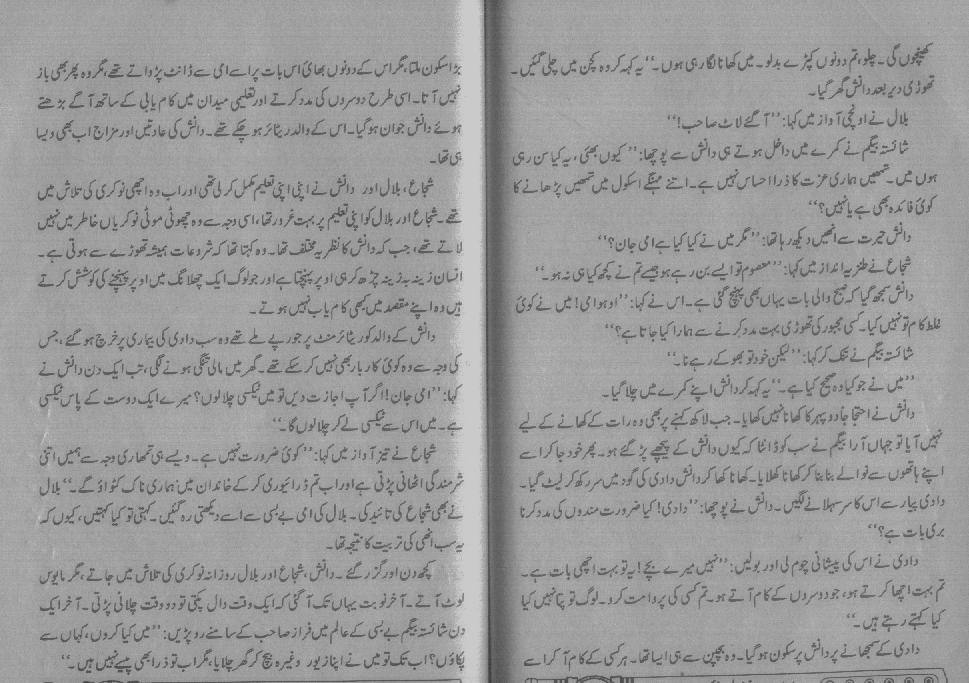 کھینچوں گی۔ چلو، تم دونوں کپڑے بدلو۔ میں کھانا لگا رہی ہوں۔‘‘ یہ کہہ کر وہ کچن میں چلی گئیں۔
تھوڑی دیر بعد دانش گھر گیا۔
بلال نے اونچی آواز میں کہا: ’’آ گئے لاٹ صاحب!‘‘
شائستہ بیگم نے کمرے میں داخل ہوتے ہی دانش سے پوچھا: ’’کیوں بھئی، یہ کیا سن رہی
ہوں میں۔ تمھیں ہماری عزت کا ذرا احساس نہیں ہے۔ اتنے مہنگے اسکول میں تمھیں پڑھانے کا
کوئی فائدہ بھی ہے یا نہیں؟‘‘
دانش حیرت سے انھیں دیکھ رہا تھا: ’’مگر میں نے کیا کیا ہے امی جان؟‘‘
شجاع نے طنزیہ انداز میں کہا: ’’معصوم تو ایسے بن رہے ہو جیسے تم نے کچھ کیا ہی نہ ہو۔‘‘
دانش سمجھ گیا کہ صبح والی بات یہاں بھی پہنچ گئی ہے۔ اس نے کہا: ’’اوہو امی! میں نے کوئی
غلط کام تو نہیں کیا۔ کسی مجبور کی تھوڑی بہت مدد کرنے سے ہمارا کیا جاتا ہے؟‘‘
شائستہ بیگم نے تنک کر کہا: ’’لیکن خود تو بھوکے رہے نا۔‘‘
’’میں نے جو کیا وہ صحیح کیا ہے۔‘‘ یہ کہہ کر دانش اپنے کمرے میں چلا گیا۔
دانش نے احتجاجاً دوپہر کا کھانا نہیں کھایا۔ جب لاکھ کہنے پر بھی وہ رات کے کھانے کے لیے
نہیں آیا تو جہاں آرا بیگم نے سب کو ڈانٹا کہ کیوں دانش کے پیچھے پڑ گئے ہو۔ پھر خود جا کر اسے
اپنے ہاتھوں سے نوالے بنا بنا کر کھانا کھلایا۔ کھانا کھا کر دانش دادی کی گود میں سر رکھ کر لیٹ گیا۔
دادی پیار سے اس کا سر سہلانے لگیں۔ دانش نے پوچھا: ’’دادی! کیا ضرورت مندوں کی مدد کرنا
بری بات ہے؟‘‘
دادی نے اس کی پیشانی چوم لی اور بولیں: ’’نہیں میرے بچے! یہ تو بہت اچھی بات ہے۔
تم بہت اچھا کرتے ہو، جو دوسروں کے کام آتے ہو۔ تم کسی کی پروا مت کرو۔ لوگ تو پتا نہیں کیا
کیا کہتے رہتے ہیں۔‘‘
دادی کے سمجھانے پر دانش پرسکون ہو گیا۔ وہ بچپن سے ہی ایسا تھا۔ ہر کسی کے کام آ کر اسے
بڑا سکون ملتا، مگر اس کے دونوں بھائی اس بات پر اسے امی سے ڈانٹ پڑواتے تھے، مگر وہ پھر بھی باز
نہیں آتا۔ اسی طرح دوسروں کی مدد کرتے اور تعلیمی میدان میں کام یابی کے ساتھ آگے بڑھتے
ہوئے دانش جوان ہو گیا۔ اس کے والد ریٹائر ہو چکے تھے۔ دانش کی عادتیں اور مزاج اب بھی ویسا
ہی تھا۔
شجاع، بلال اور دانش نے اپنی اپنی تعلیم مکمل کر لی تھی اور اب وہ اچھی نوکری کی تلاش میں
تھے۔ شجاع اور بلال کو اپنی تعلیم پر بہت غرور تھا، اسی وجہ سے وہ چھوٹی موٹی نوکریاں خاطر میں نہیں
لاتے تھے، جب کہ دانش کا نظریہ مختلف تھا۔ وہ کہتا تھا کہ شروعات ہمیشہ تھوڑے سے ہوتی ہے۔
انسان زینہ بہ زینہ چڑھ کر ہی اوپر پہنچتا ہے اور جو لوگ ایک چھلانگ میں اوپر پہنچنے کی کوشش کرتے
ہیں وہ اپنے مقصد میں کبھی کام یاب نہیں ہوتے۔
دانش کے والد کو ریٹائرمنٹ پر جو پیسے ملے تھے وہ سب دادی کی بیماری پر خرچ ہو گئے، جس
کی وجہ سے وہ کوئی کاروبار بھی نہیں کر سکے تھے۔ گھر میں مالی تنگی ہونے لگی، تب ایک دن دانش نے
کہا: ’’امی جان! اگر آپ اجازت دیں تو میں ٹیکسی چلا لوں؟ میرے ایک دوست کے پاس ٹیکسی
ہے۔ میں اس سے ٹیکسی لے کر چلا لوں گا۔‘‘
شجاع نے تیز آواز میں کہا: ’’کوئی ضرورت نہیں ہے۔ ویسے ہی تمھاری وجہ سے ہمیں اتنی
شرمندگی اٹھانی پڑتی ہے اور اب تم ڈرائیوری کر کے خاندان میں ہماری ناک کٹواؤ گے۔‘‘ بلال
نے بھی شجاع کی تائید کی۔ بلال کی امی بے بسی سے اسے دیکھتی رہ گئیں۔ کہتی تو کیا کہتیں، کیوں کہ
یہ سب انھی کی تربیت کا نتیجہ تھا۔
کچھ دن اور گزر گئے۔ دانش، شجاع اور بلال روزانہ نوکری کی تلاش میں جاتے، مگر مایوس
لوٹ آتے۔ آخر نوبت یہاں تک آ گئی کہ ایک وقت دال پکتی تو دو وقت چلانی پڑتی۔ آخر ایک
دن شائستہ بیگم بے بسی کے عالم میں فراز صاحب کے سامنے رو پڑیں: ’’میں کیا کروں، کہاں سے
پکاؤں؟ اب تک تو میں نے اپنا زیور وغیرہ بیچ کر گھر چلایا، مگر اب تو ذرا بھی پیسے نہیں ہیں۔‘‘